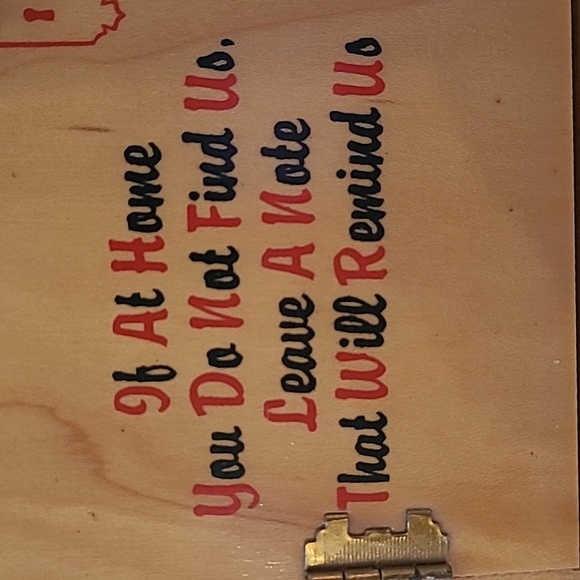 If At Home
You Do Not Find Us,
Leave A Note
That Will Remind Us